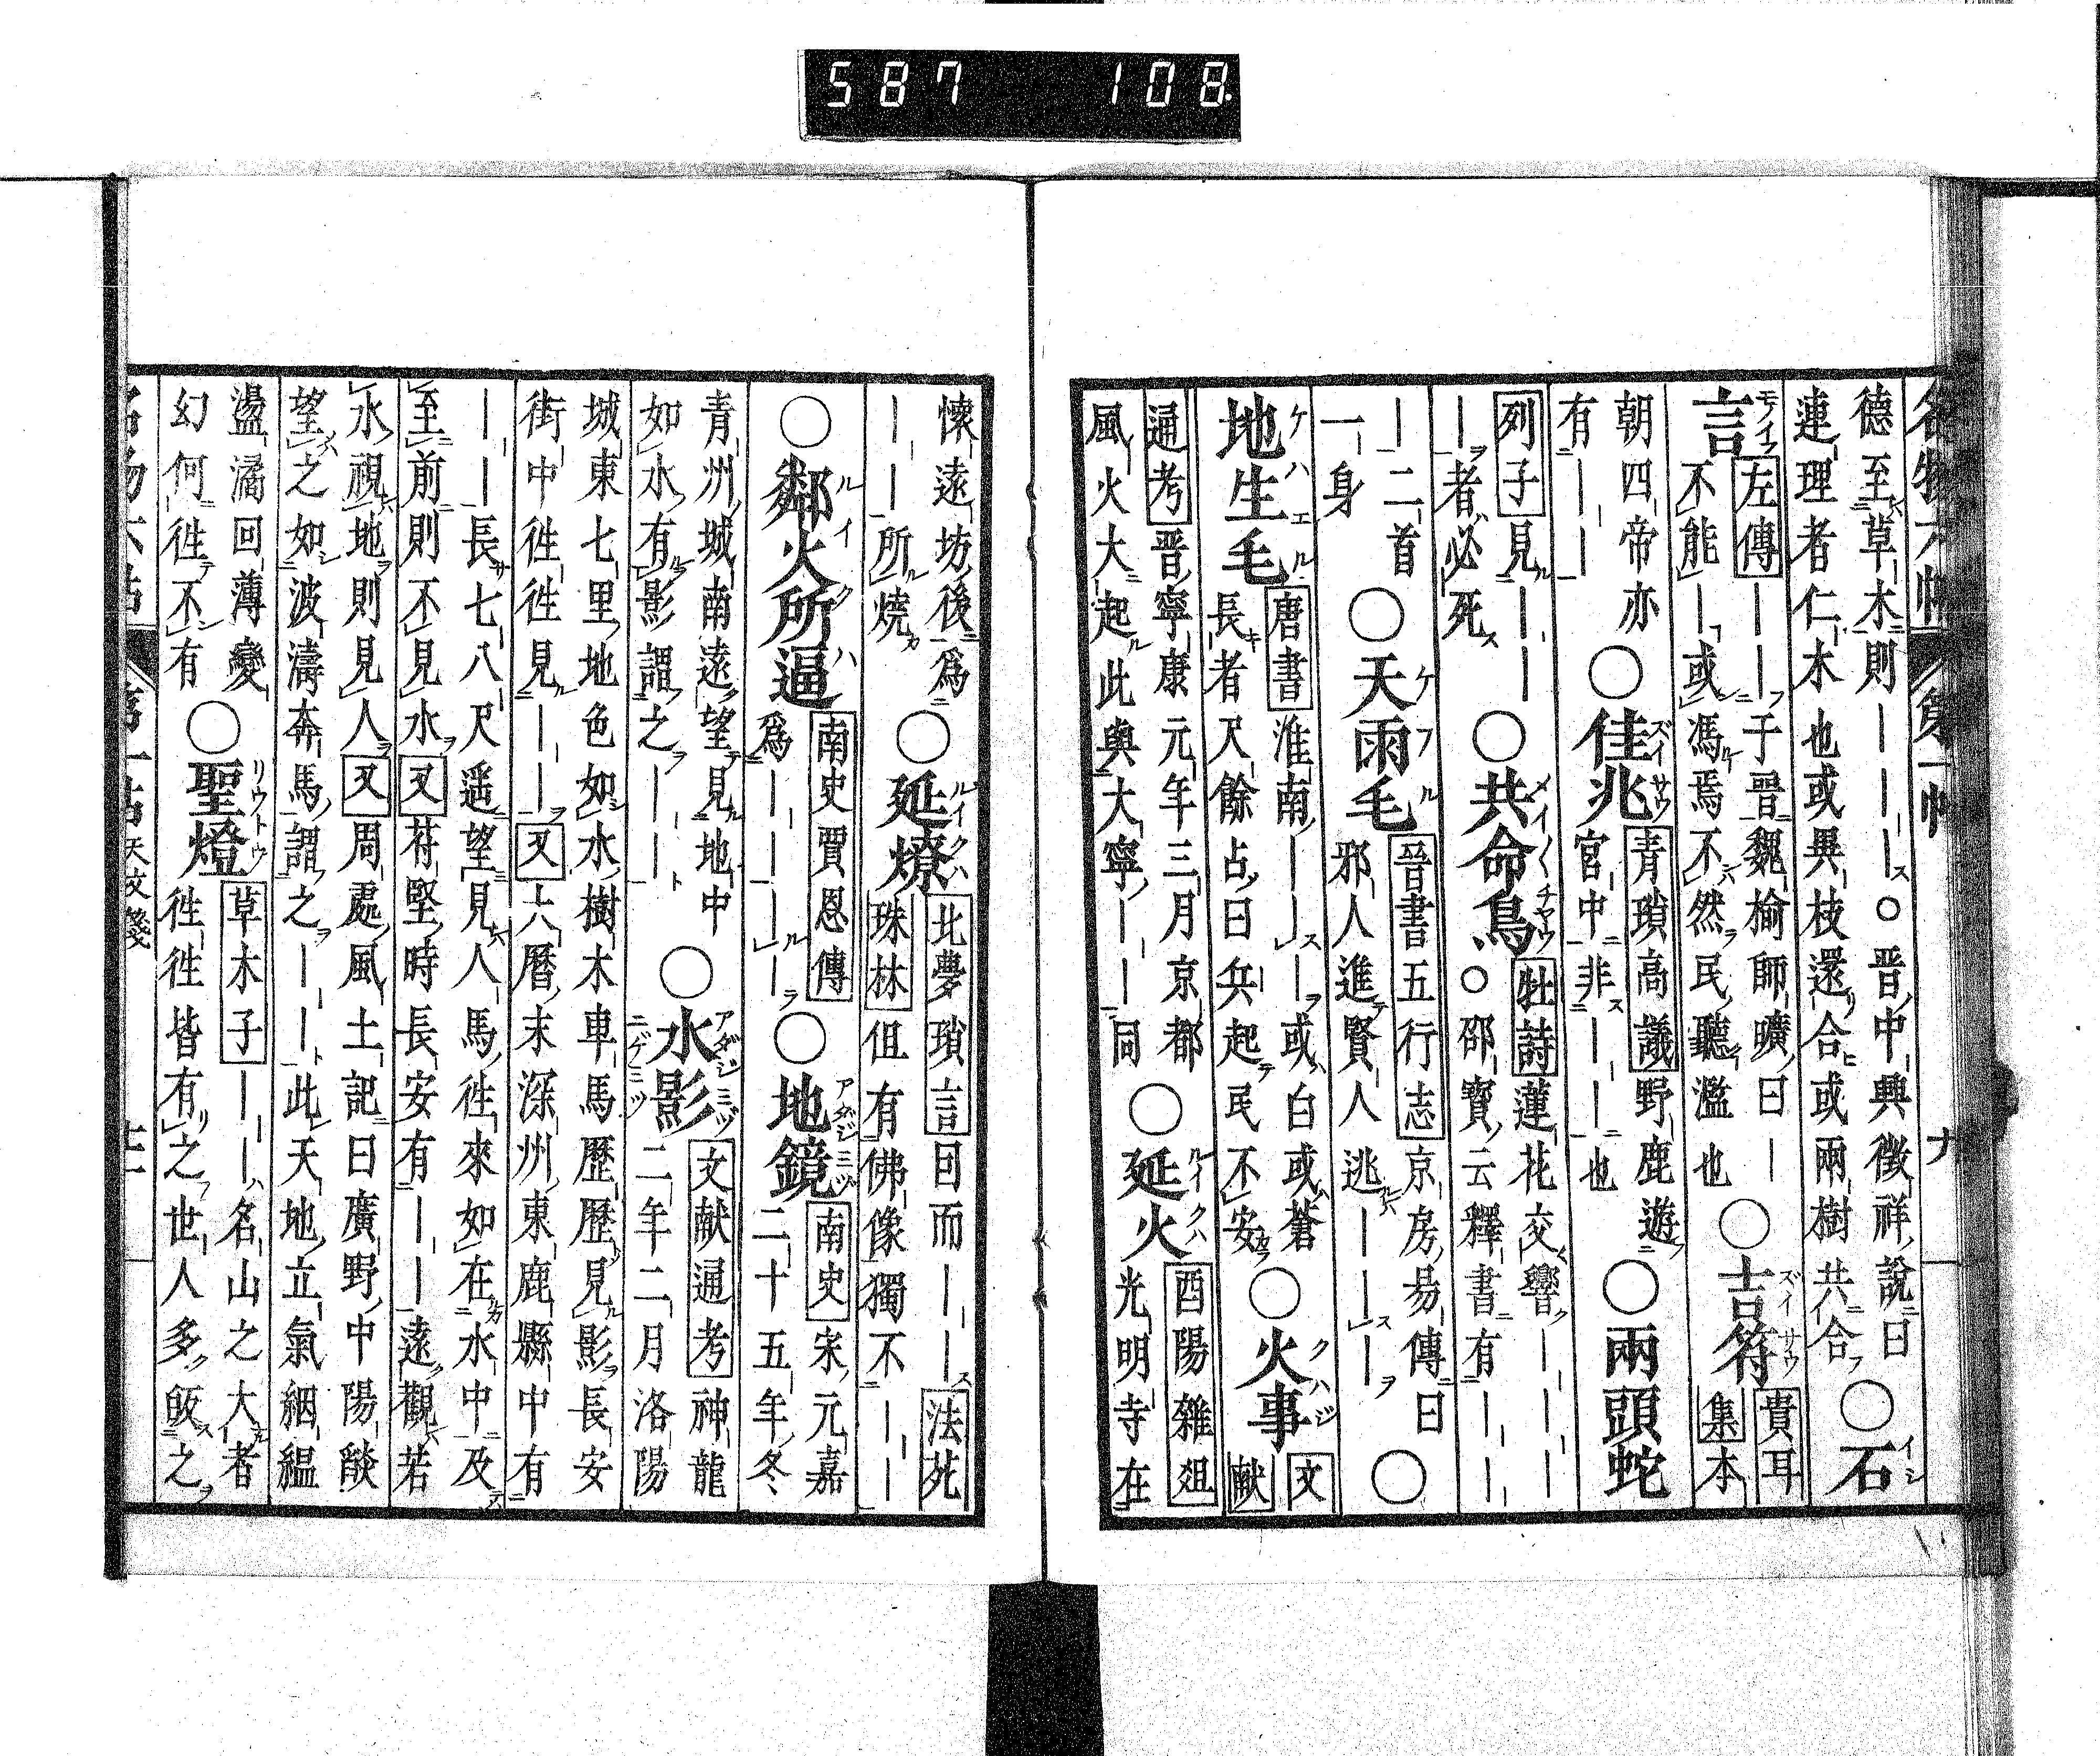 名物六帖　第一帖　九
德至草木則｜｜｜｜○晋中興徵祥說曰
連理者仁木也或異枝還合或兩樹共合
○石
イシ
言
モノイフ
左傳｜｜于晋魏榆師曠曰｜
不能｜或馮焉不然民聽濫也
○吉符
ズイサウ
貴耳
集本
朝四帝亦
有｜｜｜
○佳兆
ズイサウ
青瑣高議野鹿遊
官中非｜｜也
○兩頭蛇
列子見｜｜
｜者必死
○共命鳥
メイ〳〵チヤウ
杜詩蓮花交響｜｜｜
○邵寶云釋書有｜｜
｜二首
一身
○天雨毛
ケフル
晉書五行志京房易傳曰
邪人進賢人逃｜｜｜
○
地生毛
ケハエル
唐書淮南｜｜｜或白或蒼
長者尺餘占曰兵起民不安
○火事
クハジ
文
献
通考晋寧康元年三月京都
風火大起此與大寧｜｜同
○延火
ルイクハ
酉陽雜俎
光明寺在
懷遠坊後爲
｜｜所燒
○延燎
ルイクハ
北夢瑣言回而｜｜法苑
珠林俱有佛像獨不｜｜
○鄰火所逼
ルイクハ
南史賈恩傳
爲｜｜｜｜
○地鏡
アダジミヅ
南史宋元嘉
二十五年冬
青州城南遠望見地中
如水有影謂之｜｜
○水影
アダジミヅ
ニゲミヅ
文献通考神龍
二年二月洛陽
城東七里地色如水樹木車馬歷歷見影長安
街中徃徃見｜｜又大曆末深州東鹿縣中有
｜｜長七八尺遥望見人馬徃來如在水中及
至前則不見水又苻堅時長安有｜｜遠觀若
水視地則見人又周處風土記曰廣野中陽燄
望之如波濤奔馬謂之｜｜此天地立氣絪縕
盪潏回薄變
幻何徃不有
○聖燈
リウトウ
草木子｜｜名山之大者
徃徃皆有之世人多皈之
天文箋